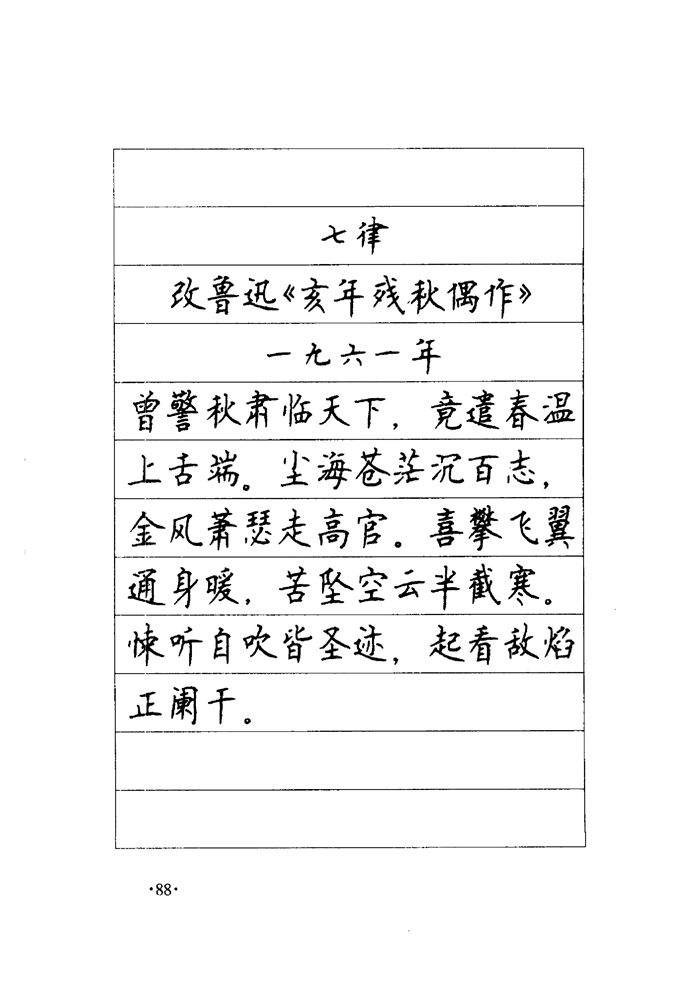 七律
改鲁迅《亥年残秋偶作》
一九六一年
曾警秋肃临天下，竟遣春温
上舌端。尘海苍茫沉百志，
金风萧瑟走高官。喜攀飞翼
通身暖，苦坠空云半截寒。
悚听自吹皆圣迹，起看敌焰
正阑干。
·88·